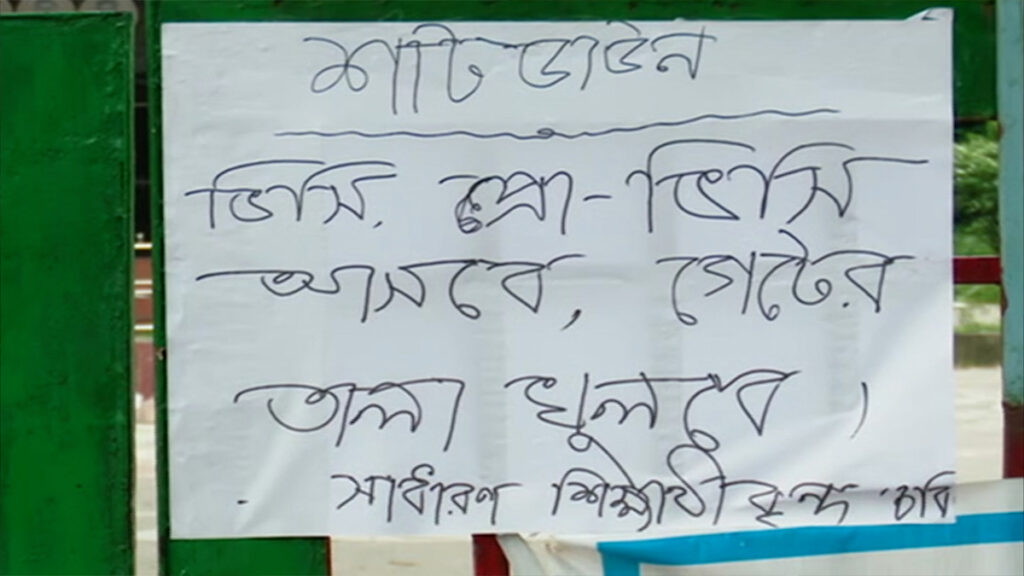 শাটডাউন
ভিসি, প্রো-ভিসি
আসবে, গেটের
তালা খুলবে।
সাধারণ শিক্ষার্থী বৃন্দ চবি